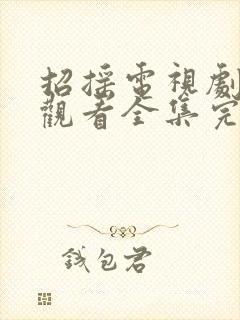 招摇電視劇
觀看全集完
錢包君